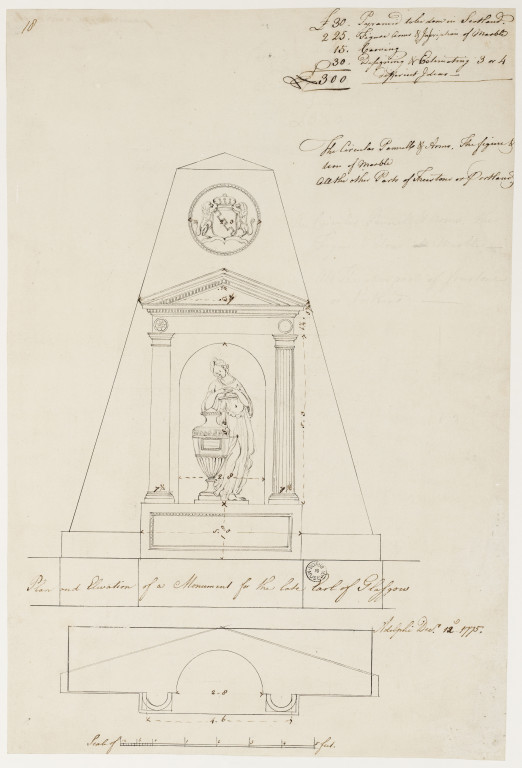 18
£ 30. Pyramid to be done in Scotland.
225. Figure Arms & Inscription of Marble
15. Carving
30. Designing & Estimating 3 or 4
£300 different Ideas
The Circular Pannell & Arms, The figure &
tion of Marble
All the other Parts of Freestone or Portland
2.8
5.0
7¾
7¾
Plan and Elevation of a Monument for the late Earl of Glasgow
Adelphi Decr. 12th 1775.
2.8
4.6
Scale of
feet.